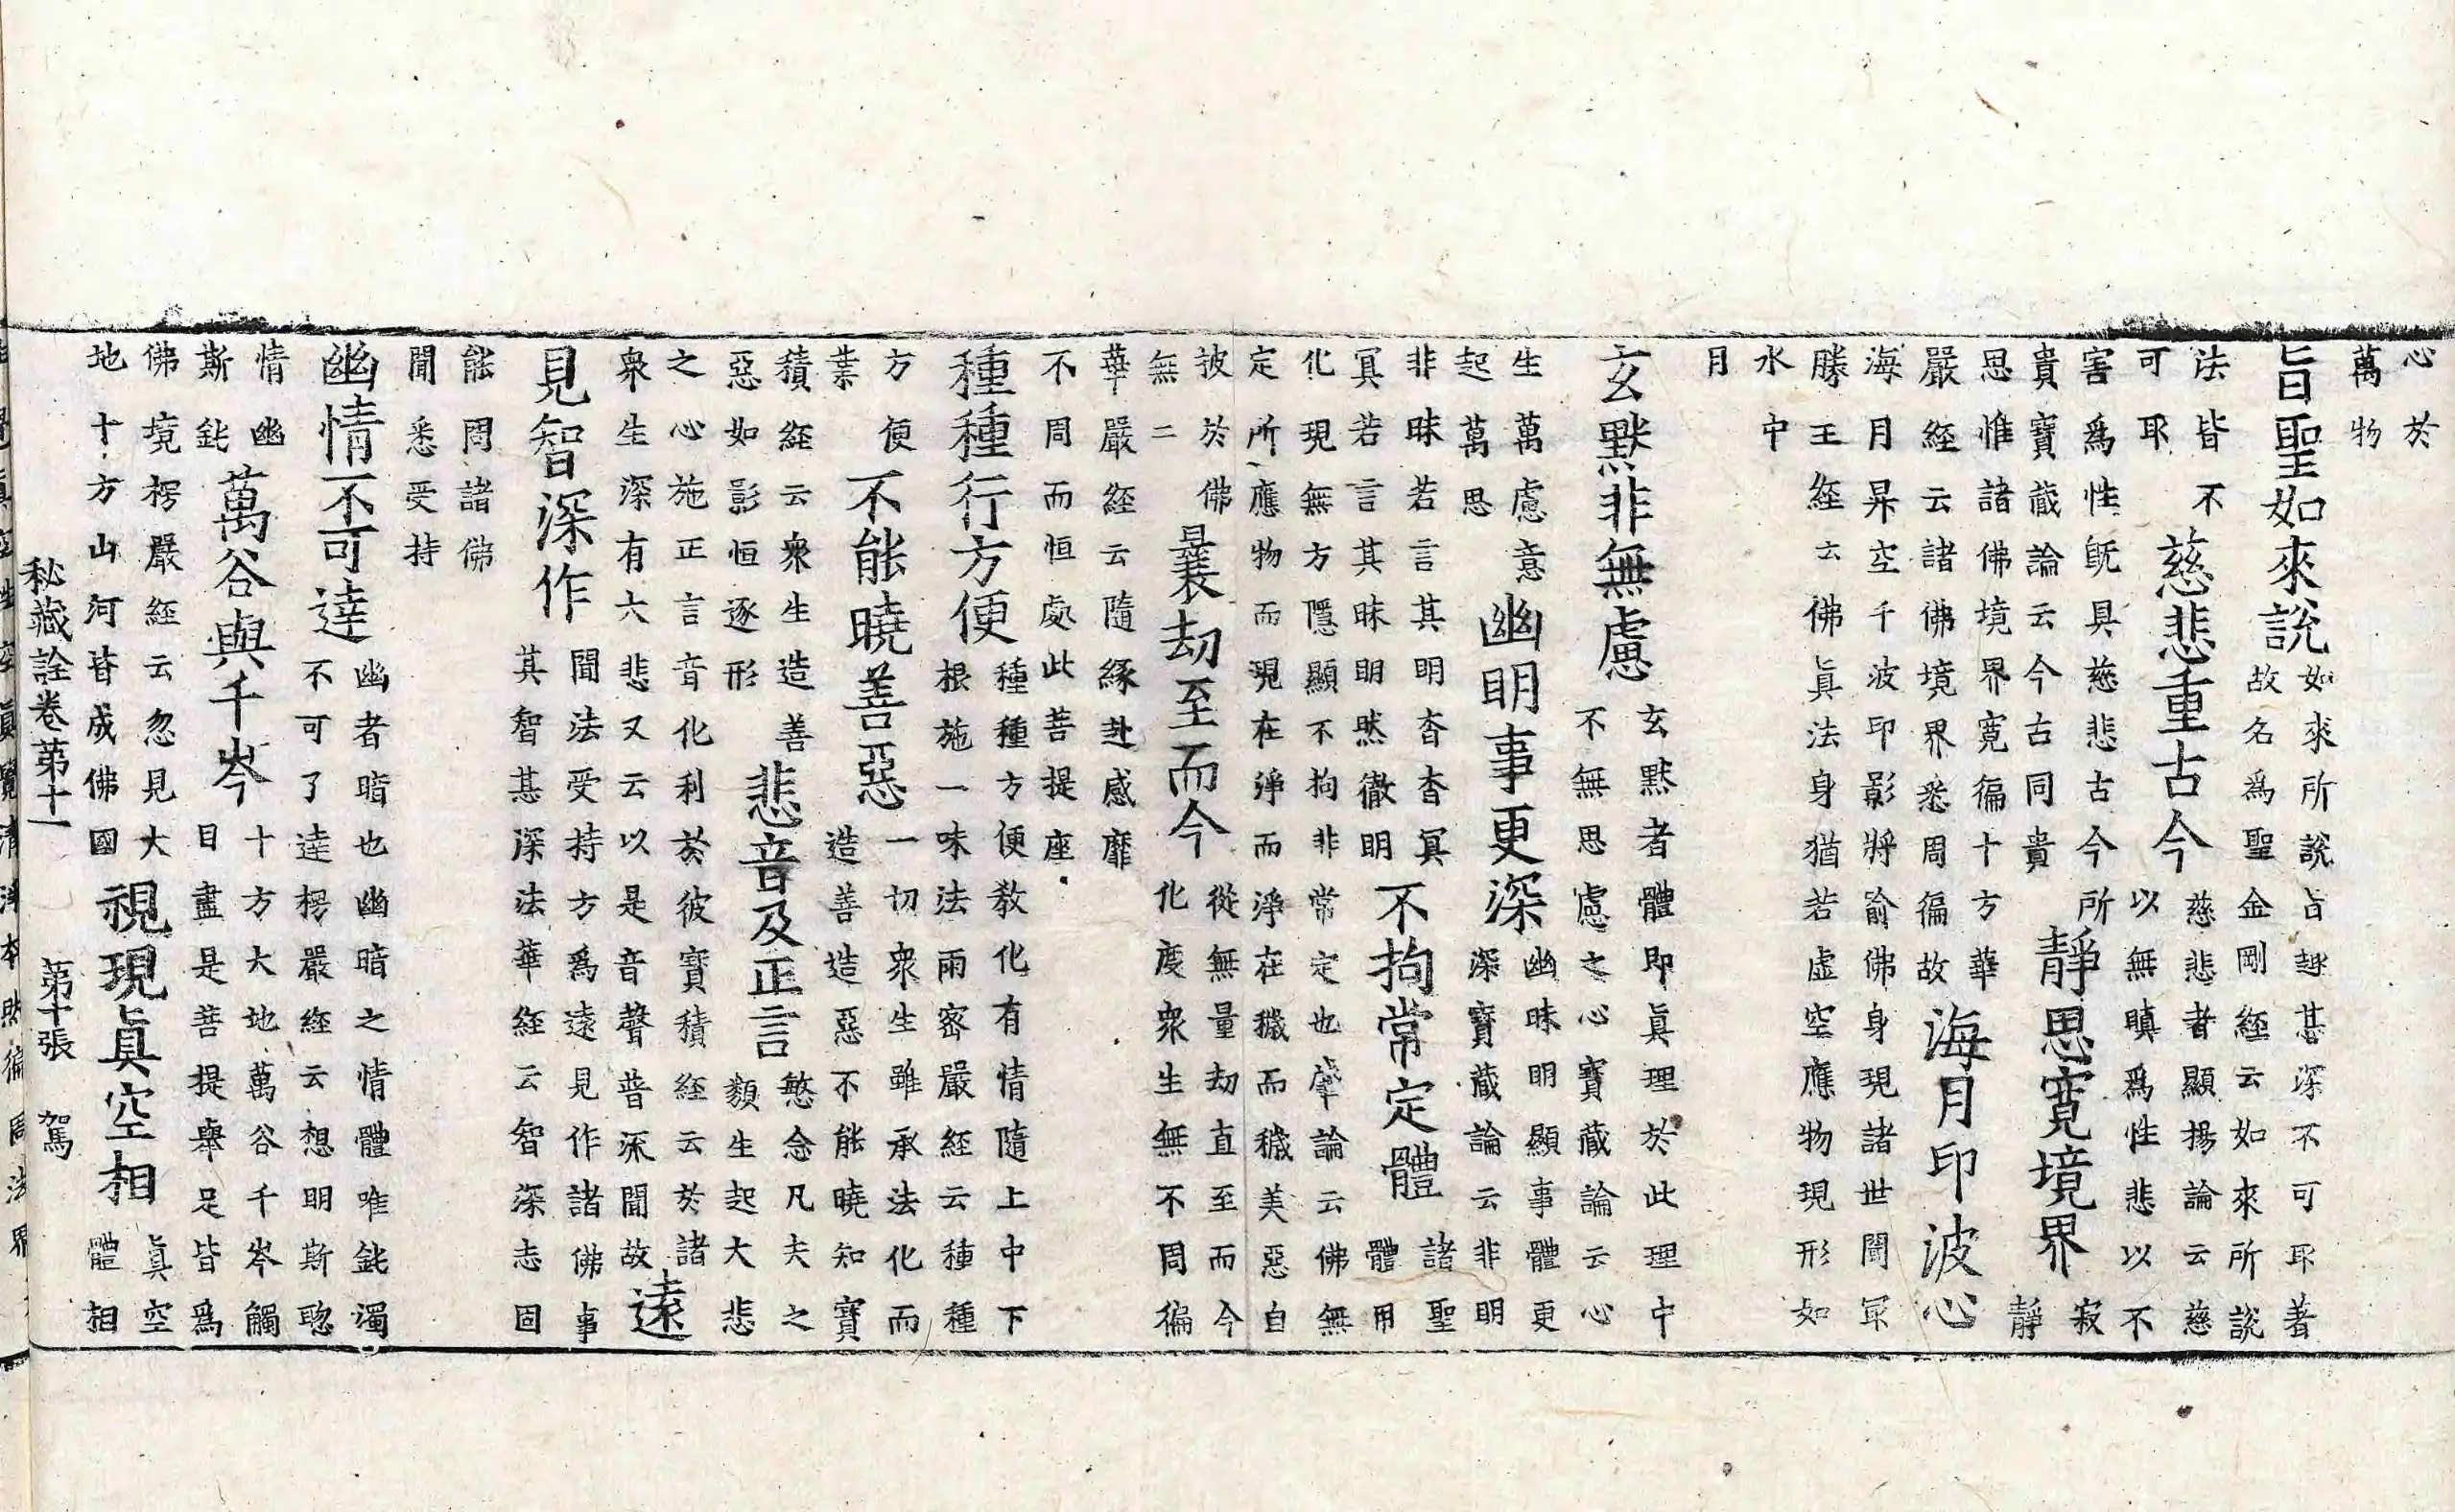 心於
萬物
旨聖如來說
如來所說旨趣甚深不可取著
故名爲聖金剛經云如來所說
法皆不
可取
慈悲重古今
慈悲者顯揚論云慈
以無瞋爲性悲以不
害爲性旣具慈悲古今所
貴寶藏論云今古同貴
靜思寬境界
寂
靜
思惟諸佛境界寬徧十方華
嚴經云諸佛境界悉周徧故
海月印波心
海月昇空千波印影將喻佛身現諸世間冣
勝王經云佛眞法身猶若虛空應物現形如
水中
月
玄默非無慮
玄默者體即眞理於此理中
不無思慮之心寶藏論云心
生萬慮意
起萬思
幽明事更深
幽昧明顯事體更
深寶藏論云非明
非昧若言其明杳杳冥
冥若言其昧明然徹明
不拘常定體
諸聖
體用
化現無方隱顯不拘非常定也肇論云佛無
定所應物而現在淨而淨在穢而穢美惡自
彼於佛
無二
曩劫至而今
從無量劫直至而今
化度衆生無不周徧
華嚴經云隨緣赴感靡
不周而恒處此菩提座
種種行方便
種種方便敎化有情隨上中下
根施一味法雨密嚴經云種種
方便
業
不能曉善惡
一切衆生雖承法化而
造善造惡不能曉知寶
積經云衆生造善
惡如影恒逐形
悲音及正言
愍念凡夫之
類生起大悲
之心施正言音化利於彼寶積經云於諸
衆生深有六悲又云以是音聲普深聞故
遠
見智深作
聞法受持方爲遠見作諸佛事
其智甚深法華經云智深志固
能問諸佛
聞悉受持
幽情不可達
幽者暗也幽暗之情體唯鈍濁
不可了達楞嚴經云想明斯聰
情幽
斯鈍
萬谷與千岑
十方大地萬谷千岑觸
目盡是菩提舉足皆爲
佛境楞嚴經云忽見大
地十方山河皆成佛國
視現眞空相
眞空
體相
秘藏詮卷第十一 第十張 駕